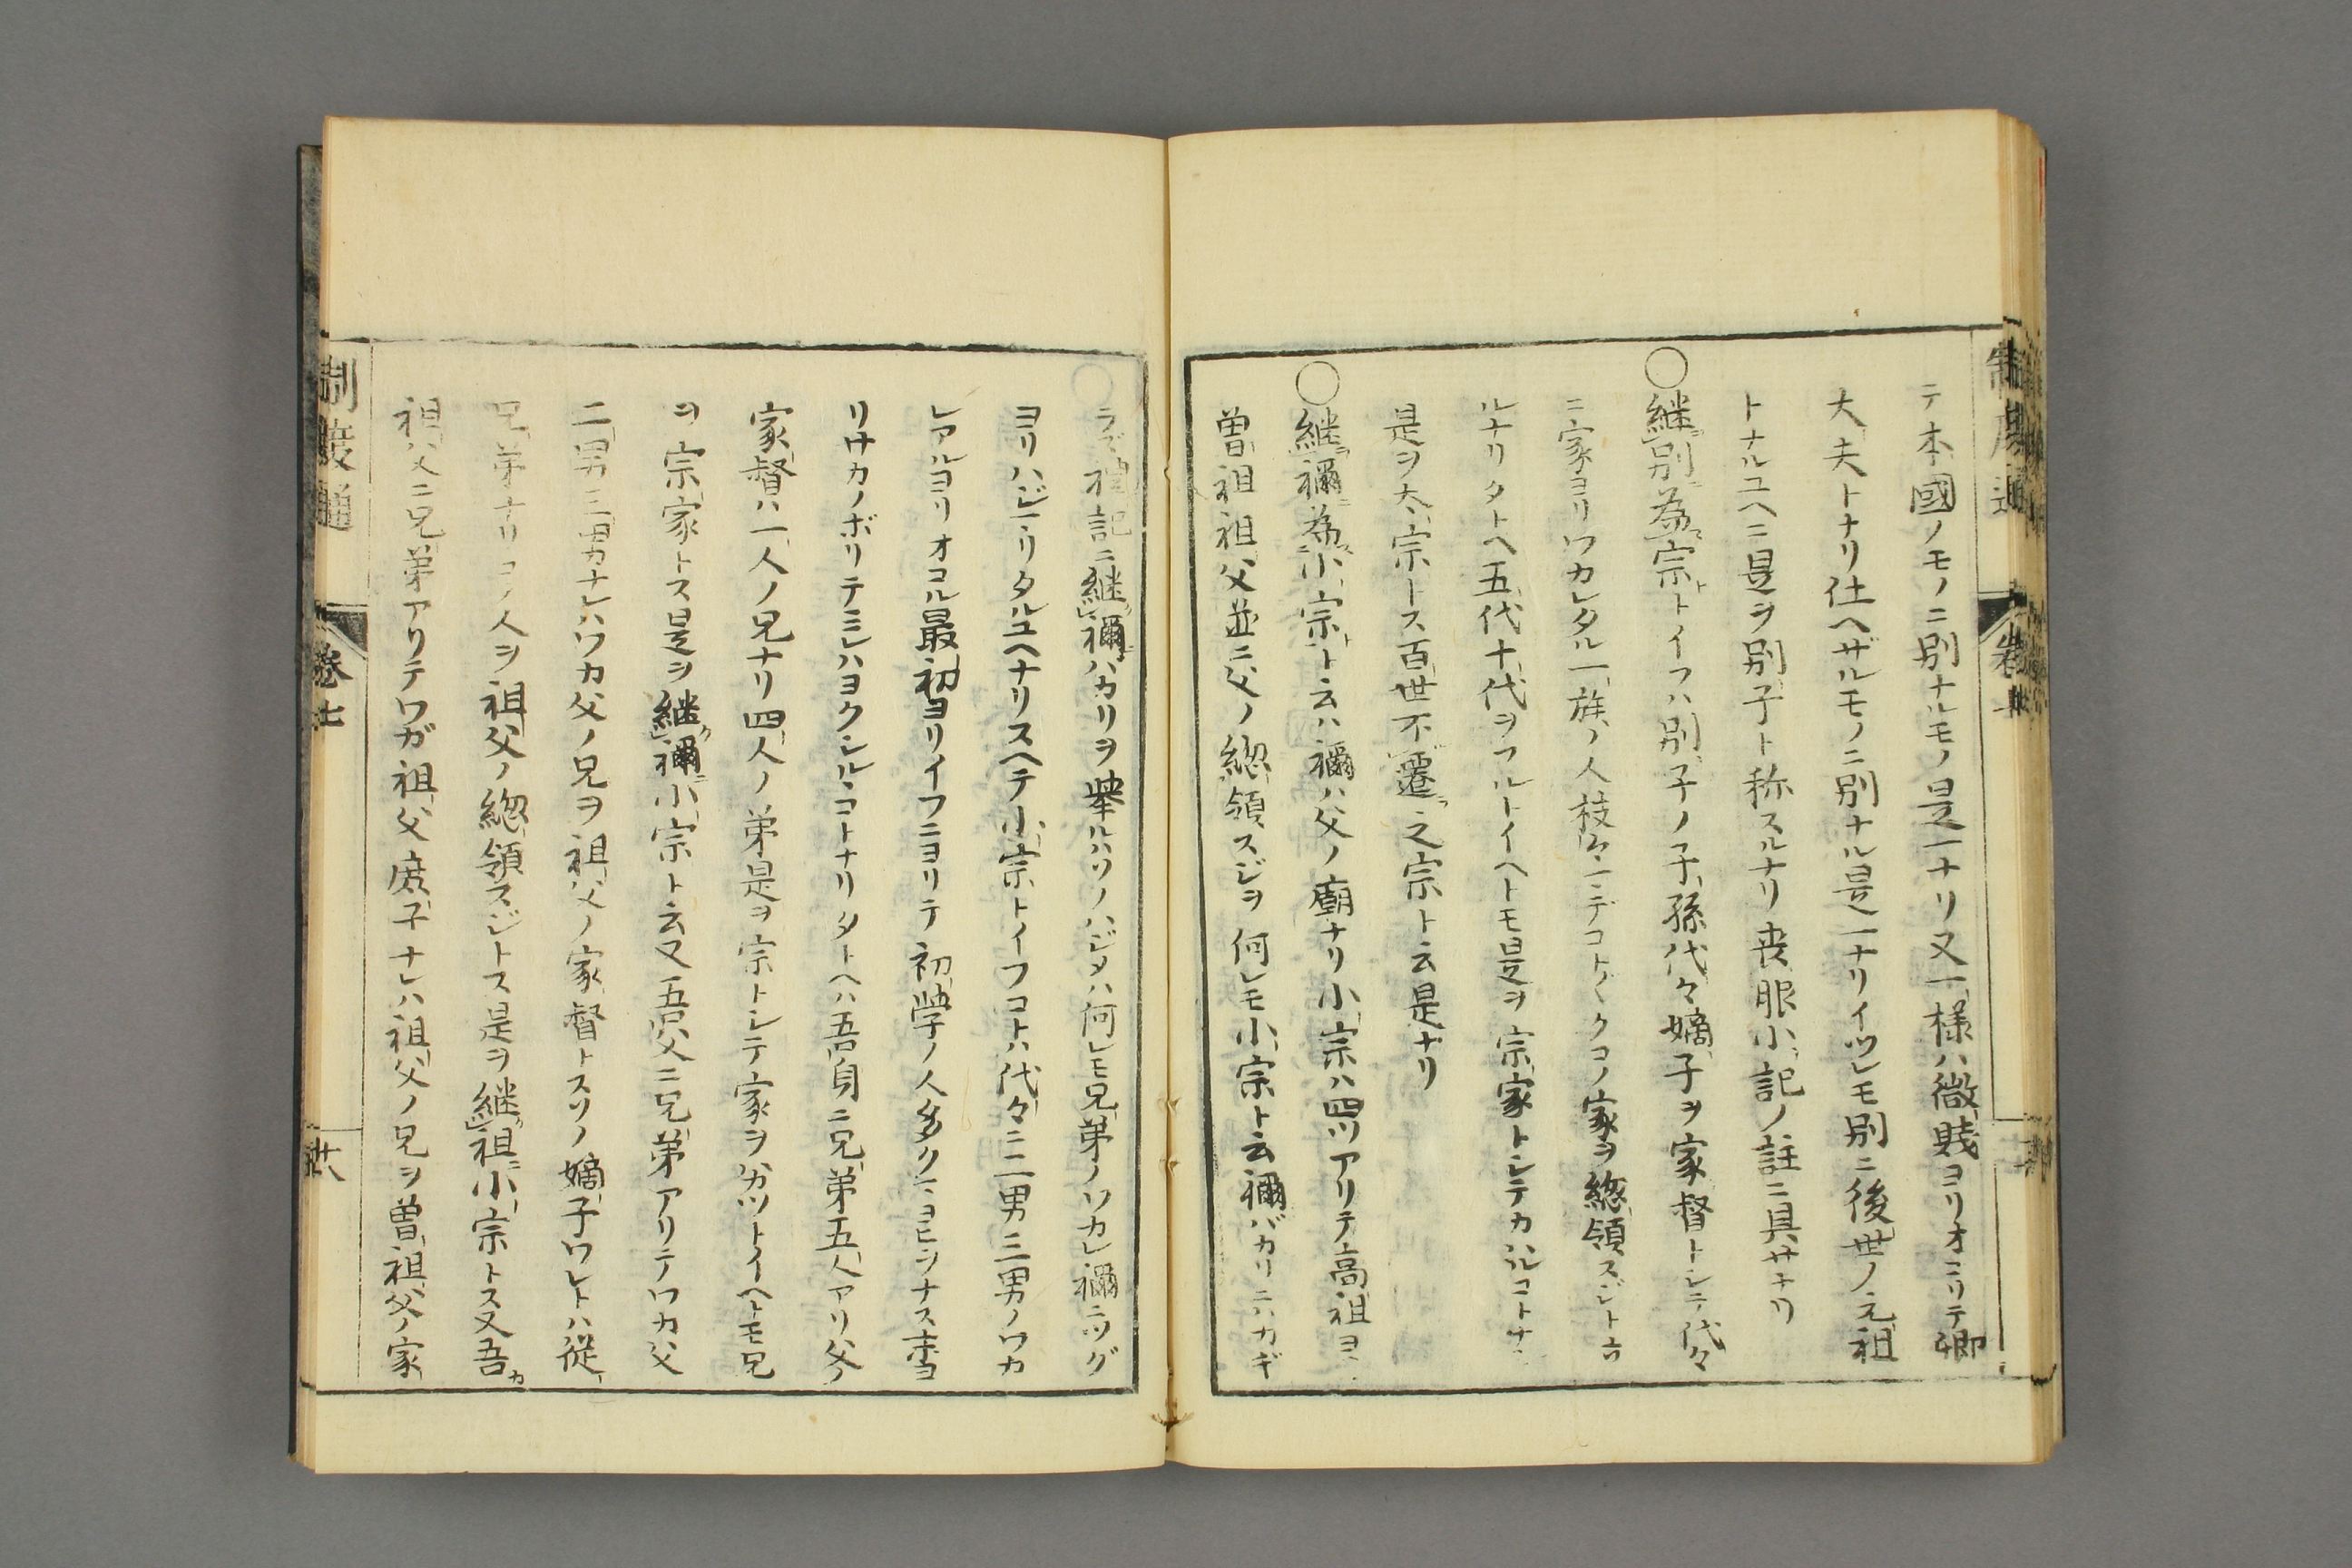 テ本國ノモノニ別ナルモノ是一ナリ又一樣ハ微賤ヨリオコリテ卿
大夫トナリ仕ヘザルモノニ別ナル是一ナリイツレモ別ニ後世ノ元祖
トナルユヘニ是ヲ別子ト称スルナリ喪服小記ノ註ニ具サナリ
○継別為宗トイフハ別子ノ子孫代々嫡子ヲ家督トシテ代々
ニ家ヨリワカレタル一族ノ人枝々ニテコト〱クコノ家ヲ緫領スジト
ルナリタトヘ五代十代ヲフルトイヘトモ是ヲ宗家トシテカハルコトナ
是ヲ大宗トス百世不遷之宗ト云是ナリ
○継禰為小宗ト云ハ禰ハ父ノ廟ナリ小宗ハ四ツアリテ高祖ヨ
曽祖祖父並ニ父ノ緫領スジヲ何レモ小宗ト云禰バカリニハカギ
ラズ禮記ニ継禰ハカリヲ挙ルハソノハジメハ何レモ兄弟ノワカレ禰ニツグ
ヨリハジマリタルユヘナリスヘテ小宗トイフコトハ代々ニ二男三男ノワカ
レアルヨリオコル最初ヨリイフニヨリテ初学ノ人多クハ
リサカノボリテミレハヨクシルヽコトナリタトヘハ吾身ニ兄弟五人アリ父ノ
家督ハ一人ノ兄ナリ四人ノ弟是ヲ宗トシテ家ヲ分カツトイヘトモ兄
ヲ宗家トス是ヲ継禰小宗ト云又吾父ニ兄弟アリテワカ父
二男三男ナレハワカ父ノ兄ヲ祖父ノ家督トスソノ嫡子ワレトハ從
兄弟ナリコノ人ヲ祖父ノ緫領スジトス是ヲ継祖小宗トス又吾カ
祖父ニ兄弟アリテワガ祖父庶子ナレハ祖父ノ兄ヲ曽祖父ノ家
制度通
卷七
廿八